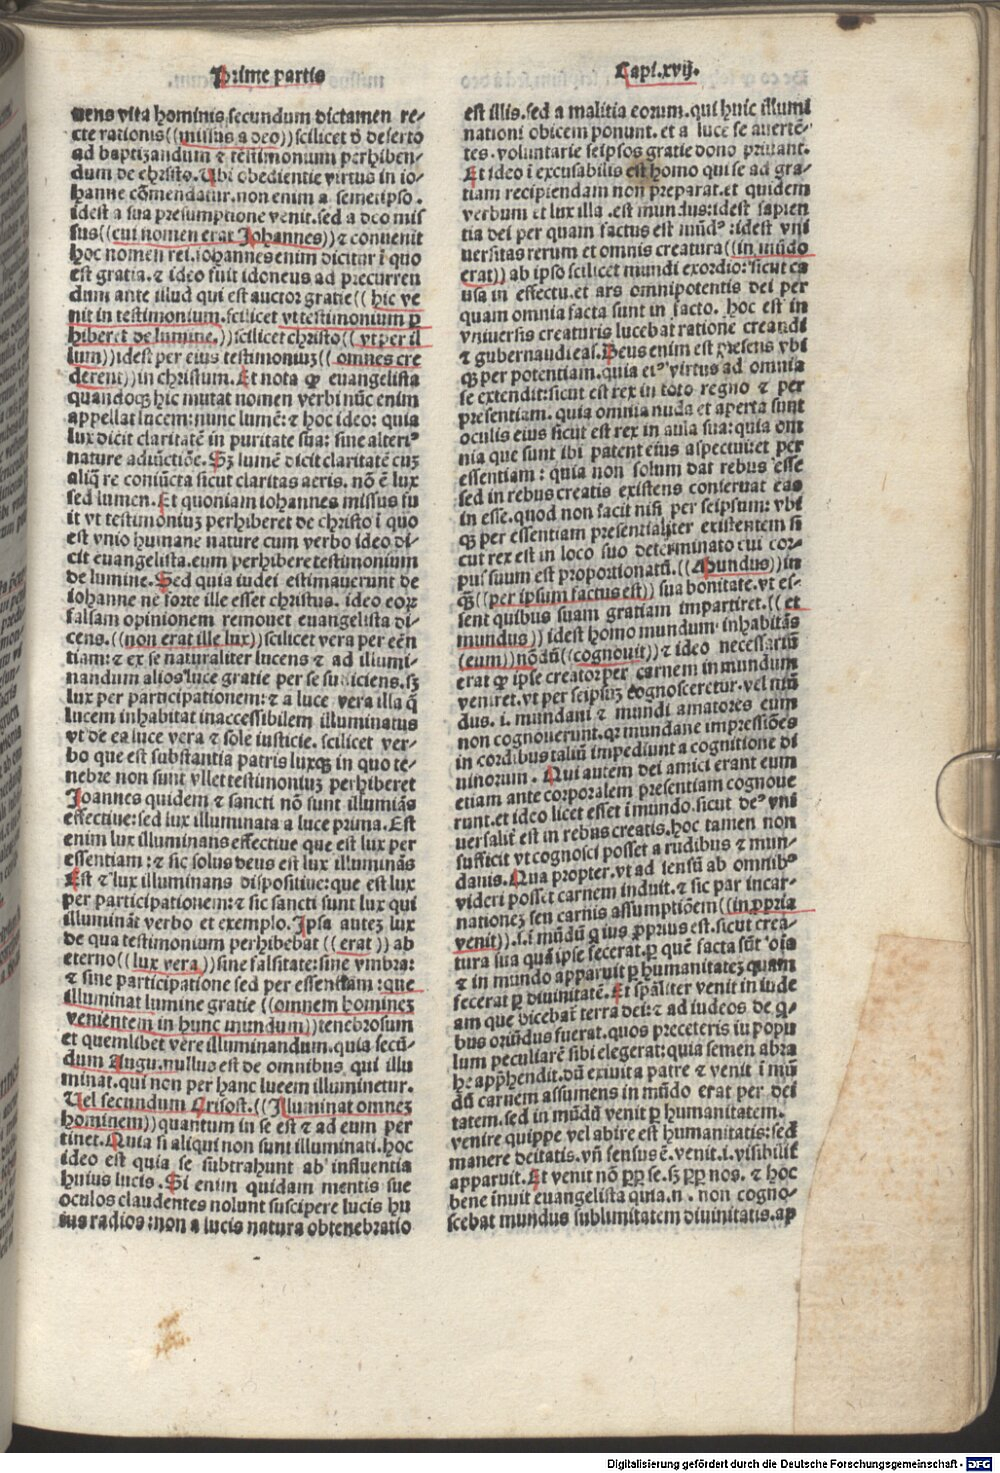 Prime partis
Capi.xvij.
uens vita hominis secundum dictamen re-
cte rationis((missus a deo))scilicet d̄ deserto
ad baptizandum ⁊ tēstimonium perhiben-
dum de christo. Ubi obedientie virtus in io-
hanne cōmendatur.non enim a semetipso.
idest a sua presumptione venit.sed a deo mis
sus((cui nomen erat Johannes))⁊ conuenit
hoc nomen rei.iohannes enim dicitur ī quo
est gratia.⁊ ideo fuit idoneus ad precurren
dum ante illud qui est auctor gratie((hic ve
nit in testimonium.scilicet vt testimonium ꝑ
hiberet de lumine.))scilicet christo((vt per il
lum))idest per eius testimoniuꝫ((omnes cre
derent))in christum. Et nota ꝙ euangelista
quandoqꝫ hic mutat nomen verbi nūc enim
appellat lucem:nunc lumē:⁊ hoc ideo: quia
lux dicit claritatē in puritate sua: sine alteriꝰ
nature adiūctiōe. Sꝫ lumē dicit claritatē cuꝫ
aliq̄ re coniūcta sicut claritas aeris. nō ē lux
sed lumen. Et quoniam iohannes missus fu
it vt testimoniuꝫ perhiberet de christo ī quo
est vnio humane nature cum verbo ideo di-
cit euangelista.eum perhibere testimonium
de lumine. Sed quia iudei estimauerunt de
iohanne ne forte ille esset christus. ideo eoꝝ
falsam opinionem remouet euangelista di-
cens.((non erat ille lux))scilicet vera per eēn
tiam:⁊ ex se naturaliter lucens ⁊ ad illumi-
nandum alios luce gratie per se sufficiens.sꝫ
lux per participationem:⁊ a luce vera illa q̄
lucem inhabitat inaccessibilem illuminatus
vt de ea luce vera ⁊ sole iusticie. scilicet ver-
bo que est substantia patris luxqꝫ in quo te-
nebre non sunt vllet testimoniuꝫ perhiberet
Joannes quidem ⁊ sancti nō sunt illumiās
effectiue:sed lux illuminata a luce prima. Est
enim lux illuminans effectiue que est lux per
essentiam:⁊ sic solus deus est lux illuminās
Est ⁊ lux illuminans dispositiue:que est lux
per participationem:⁊ sic sancti sunt lux qui
illumināt verbo et exemplo. Ipsa auteꝫ lux
de qua testimonium perhibebat((erat))ab
eterno((lux vera))sine falsitate:sine vmbra:
⁊ sine participatione sed per essentiam:que
illuminat lumine gratie ((omnem homineꝫ
venientem in hunc mundum))tenebrosum
et quemlibet vere illuminandum.quia secū-
dum Augu.nullus est de omnibus qui illu
minat.qui non per hanc lucem illuminetur.
Vel secundum Crisost.((Illuminat omneꝫ
hominem))quantum in se est ⁊ ad eum per
tinet.Quia si aliqui non sunt illuminati.hoc
ideo est quia se subtrahunt ab influentia
huius lucis. Si enim quidam mentis sue
oculos claudentes nolunt suscipere lucis hu
ius radios:non a lucis natura obtenebratio
est illis.sed a malitia eorum.qui huic illumi
nationi obicem ponunt.et a luce se auertē-
tes.voluntarie seipsos gratie dono priuant.
Et ideo ī excusabilis est homo qui se ad gra-
tiam recipiendam non preparat.et quidem
verbum et lux illa .est mundus:idest sapien
tia dei per quam factus est mūdꝰ:idest vni
uersitas rerum et omnis creatura((in mūdo
erat))ab ipso scilicet mundi exordio:sicut ca
usa in effectu.et ars omnipotentis dei per
quam omnia facta sunt in facto. hoc est in
vniuersis creaturis lucebat ratione creandi
⁊ gubernandi eas. Deus enim est presens vbi
qꝫ per potentiam.quia eiꝰ virtus ad omnia
se extendit:sicut est rex in toto regno ⁊ per
presentiam.quia omnia nuda et aperta sunt
oculis eius sicut est rex in aula sua:quia om
nia que sunt ibi patent eius aspectui:et per
essentiam: quia non solum dat rebus esse
sed in rebus creatis existens conseruat eas
in esse.quod non facit nisi per seipsum: vbi
qꝫ per essentiam presentialiter existentem si
cut rex est in loco suo determinato cui cor-
pus suum est proportionatū.((Mundus))in
qꝫ((per ipsum factus est))sua bonitate.vt es-
sent quibus suam gratiam impartiret.((et
mundus))idest homo mundum inhabitās
(eum))nōdū((cognouit))⁊ ideo necessariū
erat ꝙ ipse creator per carnem in mundum
veniret.vt per seipsuꝫ cognosceretur.vel mū
dus. i. mundani ⁊ mundi amatores eum
non cognouerunt.qꝛ mundane impressiōes
in cordibus taliū impediunt a cognitione di
uinorum. Qui autem dei amici erant eum
etiam ante corporalem presentiam cognoue
runt.et ideo licet esset ī mundo.sicut deꝰ vni
uersalit̄ est in rebus creatis.hoc tamen non
sufficit vt cognosci posset a rudibus ⁊ mun-
danis. Qua propter.vt ad sensū ab omnibꝰ
videri posset carnem induit.⁊ sic par incar-
nationeꝫ seu carnis assumptiōem((in ꝓpria
venit)).i.ī mūdū q̄ ius ꝓprius est.sicut crea-
tura sua quā ipse fecerat.ꝑ quē facta sūt oīa
⁊ in mundo apparuit ꝑ humanitateꝫ quam
fecerat ꝑ diuinitatē. Et spāliter venit in iude
am que dicebat̄ terra dei:⁊ ad iudeos de q̄-
bus oriūdus fuerat.quos preceteris iu popu
lum peculiarē sibi elegerat:quia semen abra
he app̄hendit.dū exiuit a patre ⁊ venit ī mū
dū carnem assumens in mūdo erat per dei
tatem.sed in mūdū venit ꝑ humanitatem.
venire quippe vel abire est humanitatis:sed
manere deitatis.vn̄ sensus ē.venit.i.visibilit̄
apparuit. Et venit nō ꝓꝑ se.sꝫ ꝓꝑ nos. ⁊ hoc
bene innuit euangelista quia.n. non cogno-
scebat mundus sublimitatem diuinitatis.ap
Digitalisierung gefördert durch die Deutsche Forschungsgemeinschaft - DFG